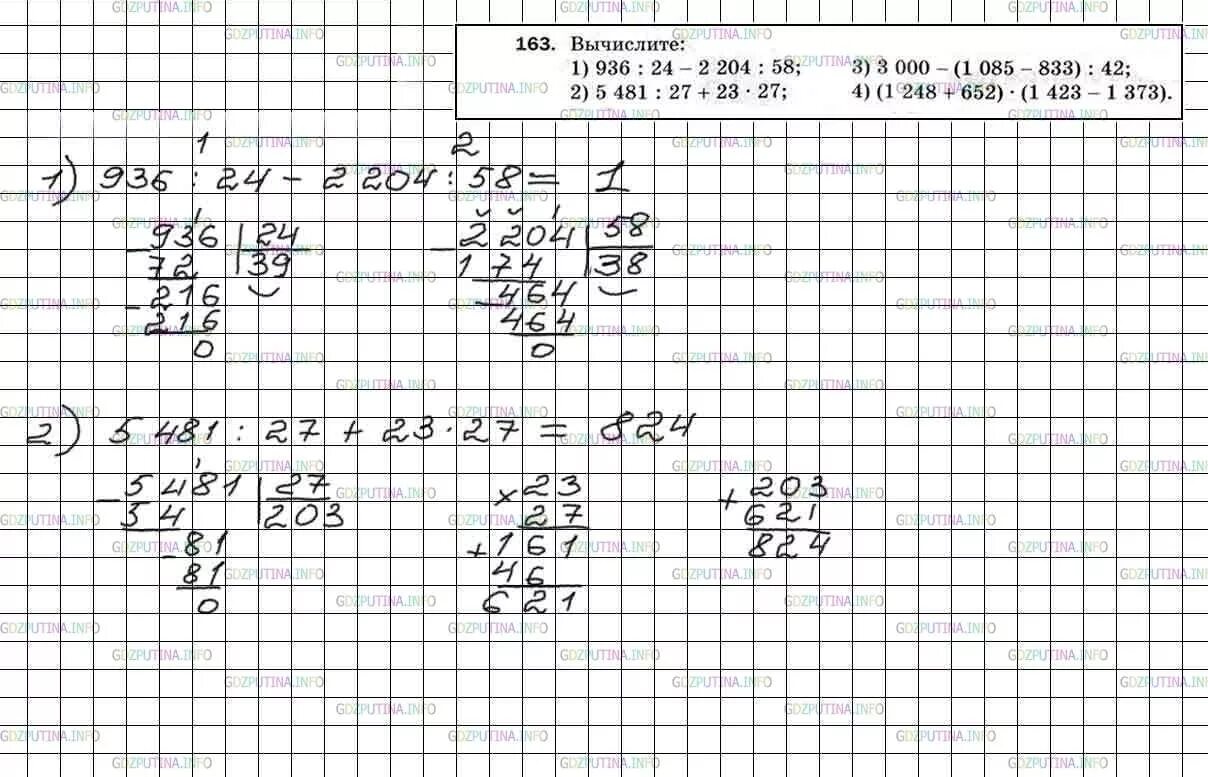 163. Вычислите:
1) 936 : 24 – 2 204 : 58;
2) 5 481 : 27 + 23 · 27;
3) 3 000 – (1 085 – 833) : 42;
4) (1 248 + 652) · (1 423 – 1 373).
1 2
1) 936 : 24 - 2 204 : 58 = 1
- 936 | 24
72 | 39
- 216
216
0
- 2 204 | 58
1 74 | 38
- 464
464
0
2) 5 481 : 27 + 23 · 27 = 824
- 5 481 | 27
54 | 203
- 81
81
0
× 23
27
+ 161
46
621
+ 203
621
824
GDZPUTINA.INFO